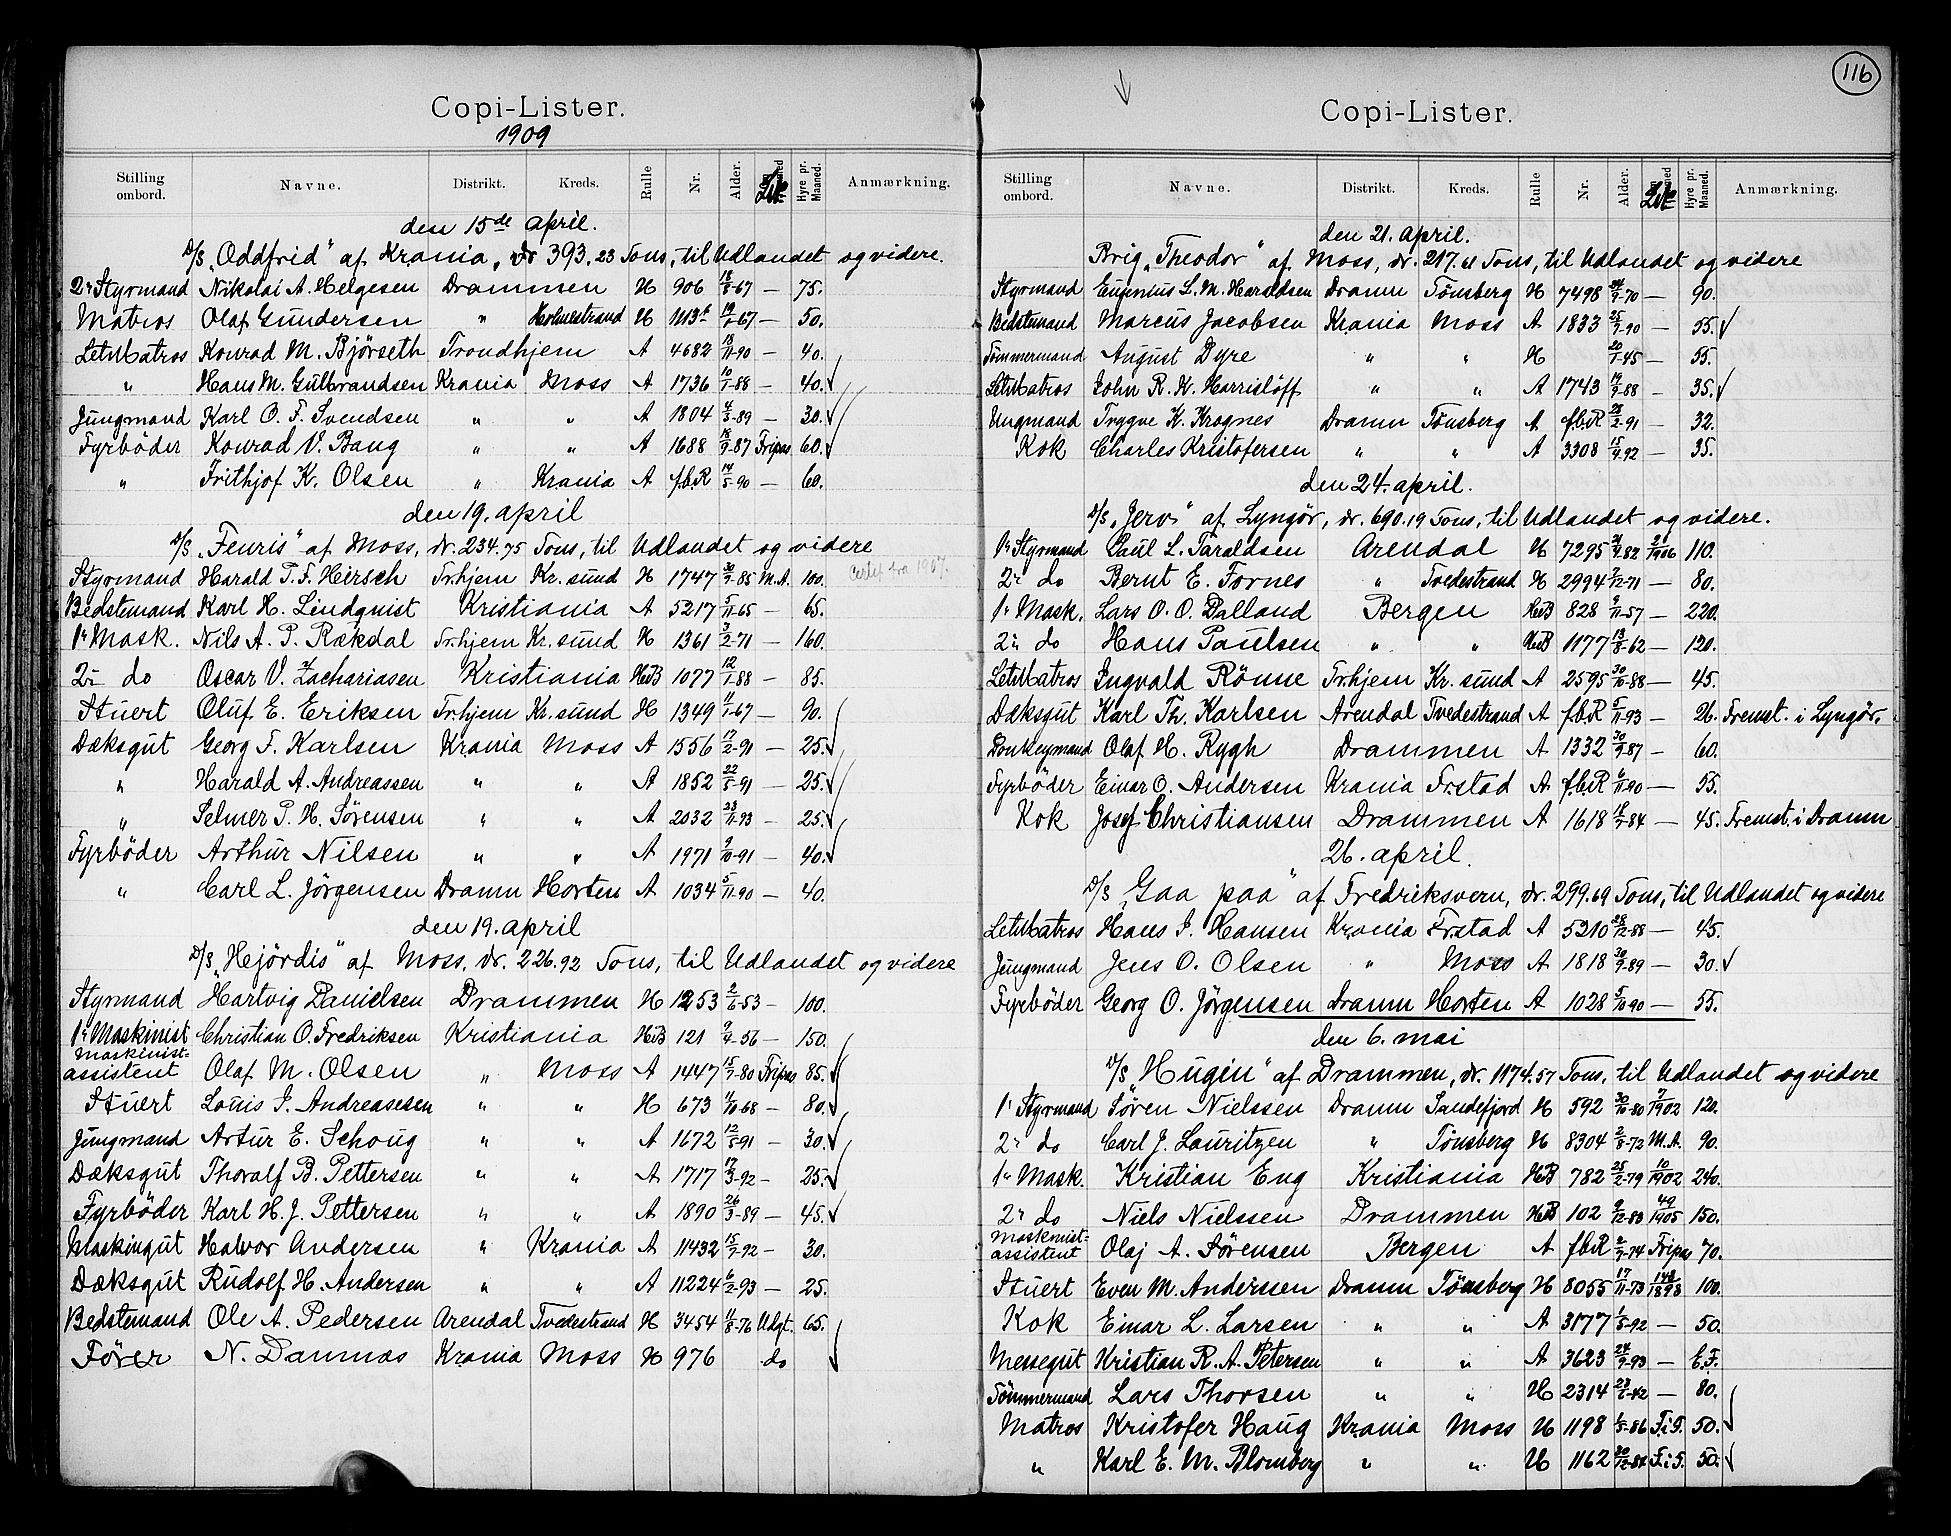 Copi-Lister.
1909
Stilling ombord. Navne. Distrikt. Kreds. Rulle Nr. Alder. Hyre pr. Maaned. Anmærkning.
den 15de april.
D/S „Oddfrid" af Krania, dr 393.23 Tons, til Udlandet og videre.
2n Styrmand Nikolai A. Helgesen Drammen H 906 18/8-67 — 75.
Matros Olaf Gundersen " Holmestrand H 1113 67 — 50.
LetMatros Konrad M. Bjørseth Trondhjem A 4682 18/11-90 — 40.
" Hans M. Gulbrandsen Krania Moss A 1736 10/1-88 — 40.
Jungmand Karl O. F. Svendsen " " A 1804 4/3-89 — 30.
Fyrbøder Konrad V. Bang " " A 1688 9-87 Fripas 60.
" Frithjof K. Olsen " Krania A f.b.R 14/5-90 — 60.
den 19. april
D/S „Fenris" af Moss, dr. 234.75 Tons, til Udlandet og videre
Styrmand Harald T. F. Hirsch Tr.hjem Kr.sund H 1747 30/9-85 M.A. 100. Certif fra 1907.
Bedstemand Karl H. Lindqvist Kristiania A 5217 5/11-65 — 65.
1n Mask. Nils A. P. Rækdal Tr.hjem Kr.sund H 1361 3/2-71 — 160.
2n do Oscar V. Zachariasen Kristiania HuB 1077 12/1-88 — 85.
Stuert Oluf E. Eriksen Tr.hjem Kr.sund H 1349 11/1-67 — 90.
Dæksgut Georg F. Karlsen Krania Moss A 1556 17/2-91 — 25.
" Harald A. Andreassen " " A 1852 22/5-91 — 25.
" Selmer P. H. Sørensen " " A 2032 23/11-93 — 25.
Fyrbøder Arthur Nilsen " " A 1971 9/10-91 — 40.
" Carl L. Jørgensen Dramn Horten A 1034 5/11-90 — 40.
den 19. april
D/S „Hjördis" af Moss, dr. 226.92 Tons, til Udlandet og videre
Styrmand Hartvig Danielsen Drammen H 1253 2/6-53 — 100.
1n Maskinist Christian O. Fredriksen Kristiania HuB 121 9/4-56 — 150.
Maskinist-assistent Olaf M. Olsen " Moss A 1447 15/7-80 Fripas 85.
Stuert Louis J. Andreasesen " " H 673 1/10-68 — 80.
Jungmand Artur E. Schoug " " A 1672 12/5-91 — 30.
Dæksgut Thoralf B. Pettersen " " A 1717 17/3-92 — 25.
Fyrbøder Karl H. J. Pettersen " " A 1890 26/3-89 — 45.
Maskingut Halvor Andersen " Krania A 11432 15/7-92 — 30.
Dæksgut Rudolf H. Andersen " " A 11224 6/2-93 — 25.
Bedstemand Ole A. Pedersen Arendal Tvedestrand H 3454 11/8-76 Udgt. 65.
Fører N. Danmas Krania Moss H 976 do
116
Copi-Lister.
Stilling ombord. Navne. Distrikt. Kreds. Rulle Nr. Alder. Hyre pr. Maaned. Anmærkning.
den 21. april.
Brig „Theodor" af Moss, dr. 217.61 Tons, til Udlandet og videre
Styrmand Eugenius L. M. Haraldsen Dramn Tønsberg H 7498 9-70 — 90.
Bedstemand Marcus Jacobsen Krania Moss A 1833 25/7-90 — 55.
Tømmermand August Dyre " " H 20/1-45 — 55.
LetMatros John R. K. Harrisloff " " A 1743 19/9-88 — 35.
Ungmand Trygve K. Krognes Dramn Tønsberg A f.b.R 28/2-91 — 32.
Kok Charles Kristofersen " " A 3308 15/9-92 — 35.
den 24. april.
D/S „Jerv" af Lyngør, dr. 690.19 Tons, til Udlandet og videre.
1n Styrmand Paul L. Taraldsen Arendal H 7295 21/4-82 2/1906 110.
2n do Bernt E. Fornes " Tvedestrand H 2994 7/12-71 — 80.
1n Mask. Lars O. O. Dalland Bergen HuB 828 9/11-57 — 220.
2n do Hans Paulsen " " HuB 1177 13/8-62 — 120.
LetMatros Ingvald Rönne Tr.hjem Kr.sund A 2595 30/10-88 — 45.
Dæksgut Karl Th. Karlsen Arendal Tvedestrand A f.b.R 5/11-93 — 26. Fremst. i Lyngör.
Donkeymand Olaf H. Rygh Drammen A 1332 30/9-87 — 60.
Fyrbøder Einar O. Andersen Krania Frstad A f.b.R 6/11-90 — 55.
Kok Josef Christiansen Drammen A 1618 7-84 — 45. Fremst. i Dramn
26. april.
D/S „Gaa paa" af Fredriksvern, dr. 299.69 Tons, til Udlandet og videre
LetMatros Hans J. Hansen Krania Frstad A 5210 28/12-88 — 45.
Jungmand Jens O. Olsen " Moss A 1818 30/9-89 — 30.
Fyrbøder Georg O. Jørgensen Dramn Horten A 1028 5/10-90 — 55.
den 6. mai
D/S „Hugin" af Drammen, dr. 1174.57 Tons, til Udlandet og videre
1n Styrmand Søren Nielssen Dramn Sandefjord H 592 30/10-80 7/1902 120.
2n do Carl J. Lauritzen " Tønsberg H 8304 2/8-72 M.A. 90.
1n Mask. Kristian Eng Kristiania HuB 782 25/2-79 10/1902 240.
2n do Niels Nielssen Drammen HuB 102 9/12-83 49/1905 150.
Maskinist-assistent Olaj A. Sørensen Bergen A f.b.R 2/7-74 Fripas 70.
Stuert Even M. Anderssen Dramn Tønsberg H 8055 17/11-73 148/1898 100.
Kok Einar L. Larsen " " A 3177 1/5-92 — 50.
Messegut Kristian R. A. Petersen " " A 3623 24/9-93 — E.F.
Tømmermand Lars Thorsen " " H 2314 23/6-42 — 80.
Matros Kristofer Haug Krania Moss H 1198 1/5-86 F.i.S. 50.
" Karl E. M. Blomberg " " H 1162 20/12-84 F.i.S. 50.